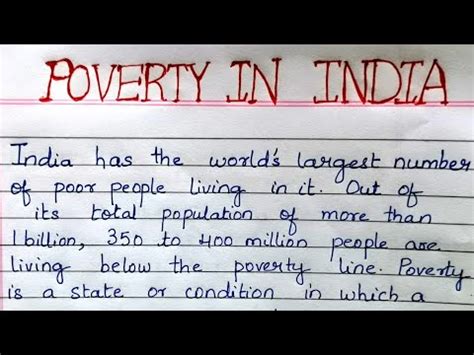 POVERTY IN INDIA
India has the world's largest number
of poor people living in it. Out of
its total population of more than
1 billion, 350 to 400 million people are
living below the poverty line. Poverty
is a state or condition in which a